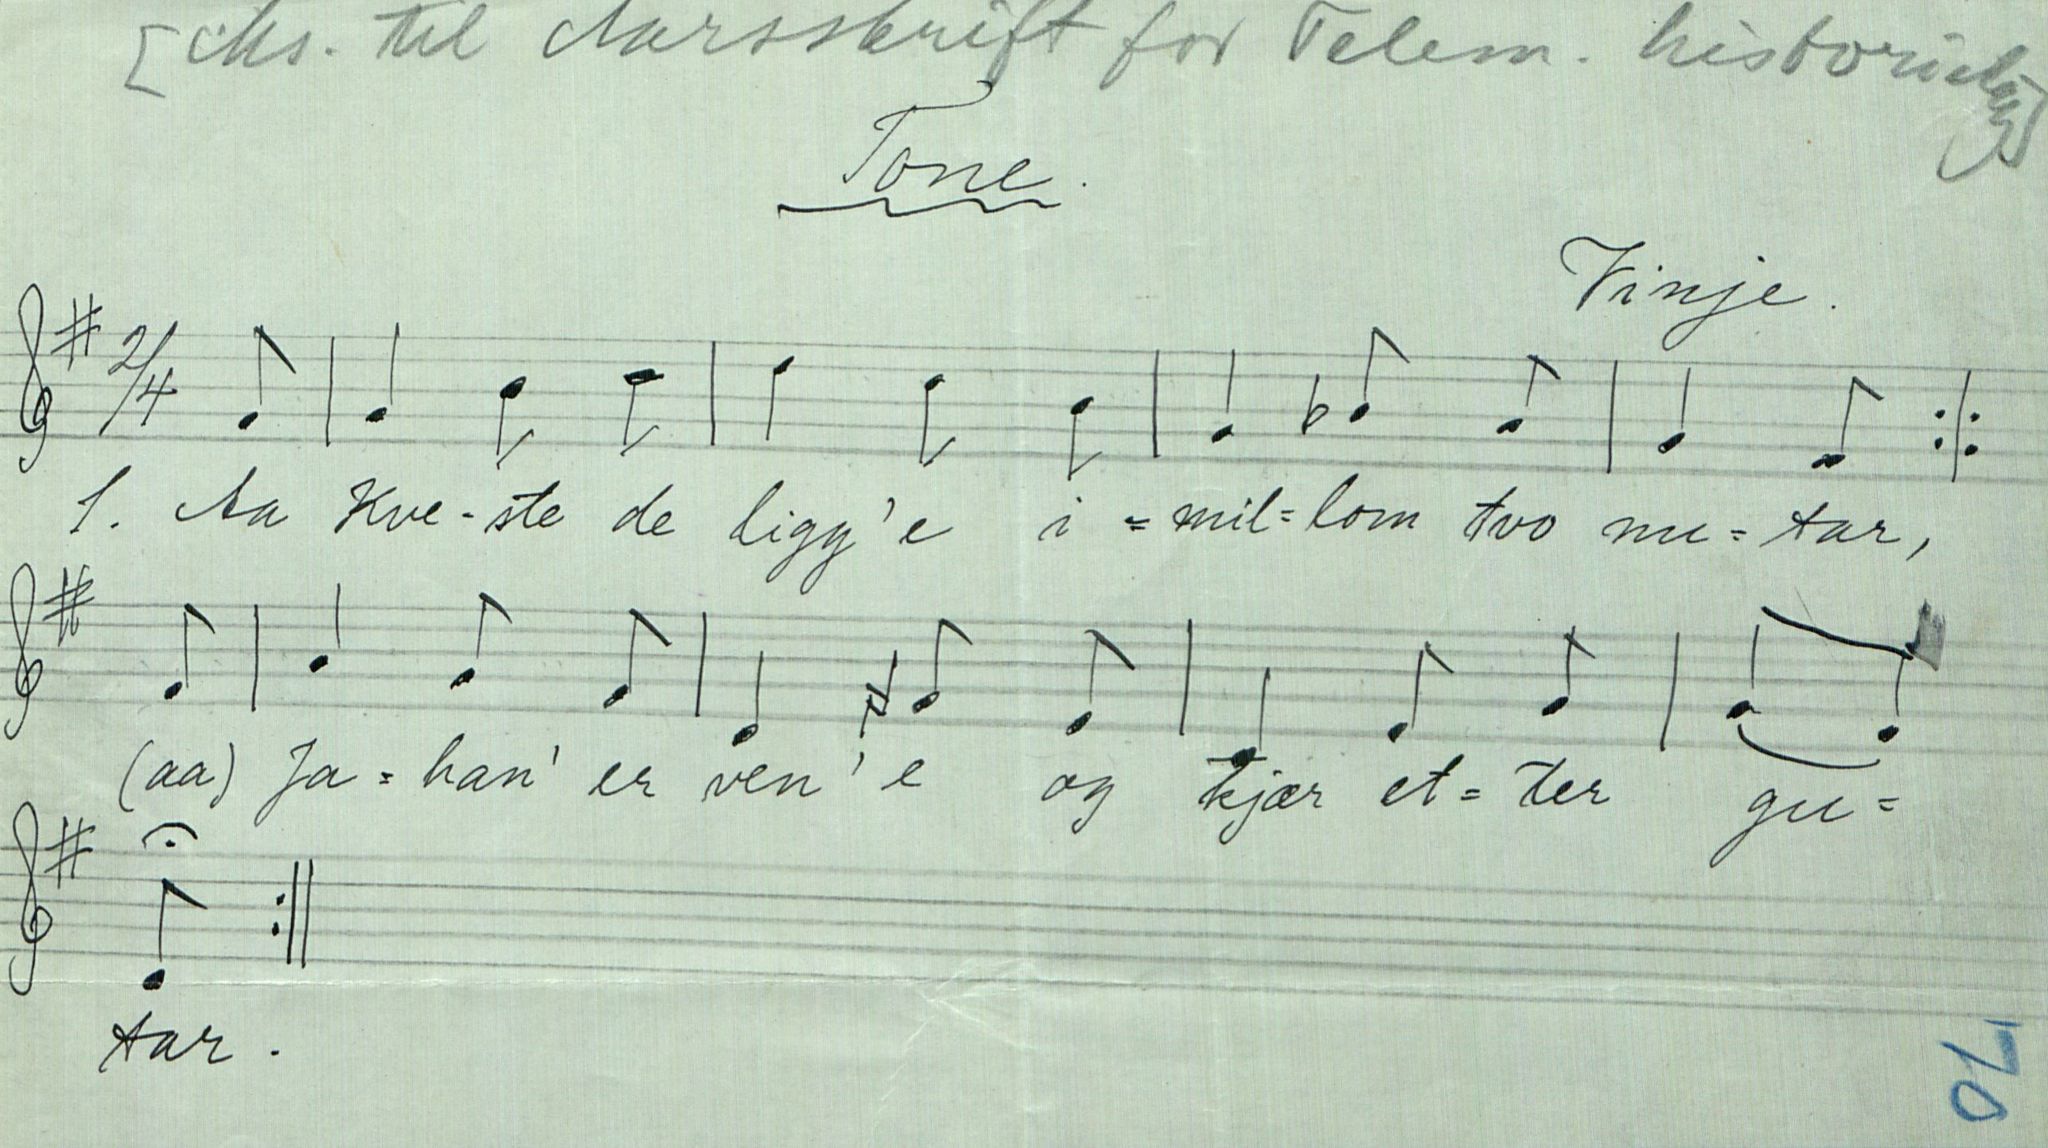 [Ms. til Aarsskrift for Telem. historielag]
Tone.
Vinje.
2/4
1. Aa Kve-ste de ligg'e i=mil=lom tvo nu=tar,
(aa) Ja=han' er ven'e og kjær et=ter gu=
tar.
70